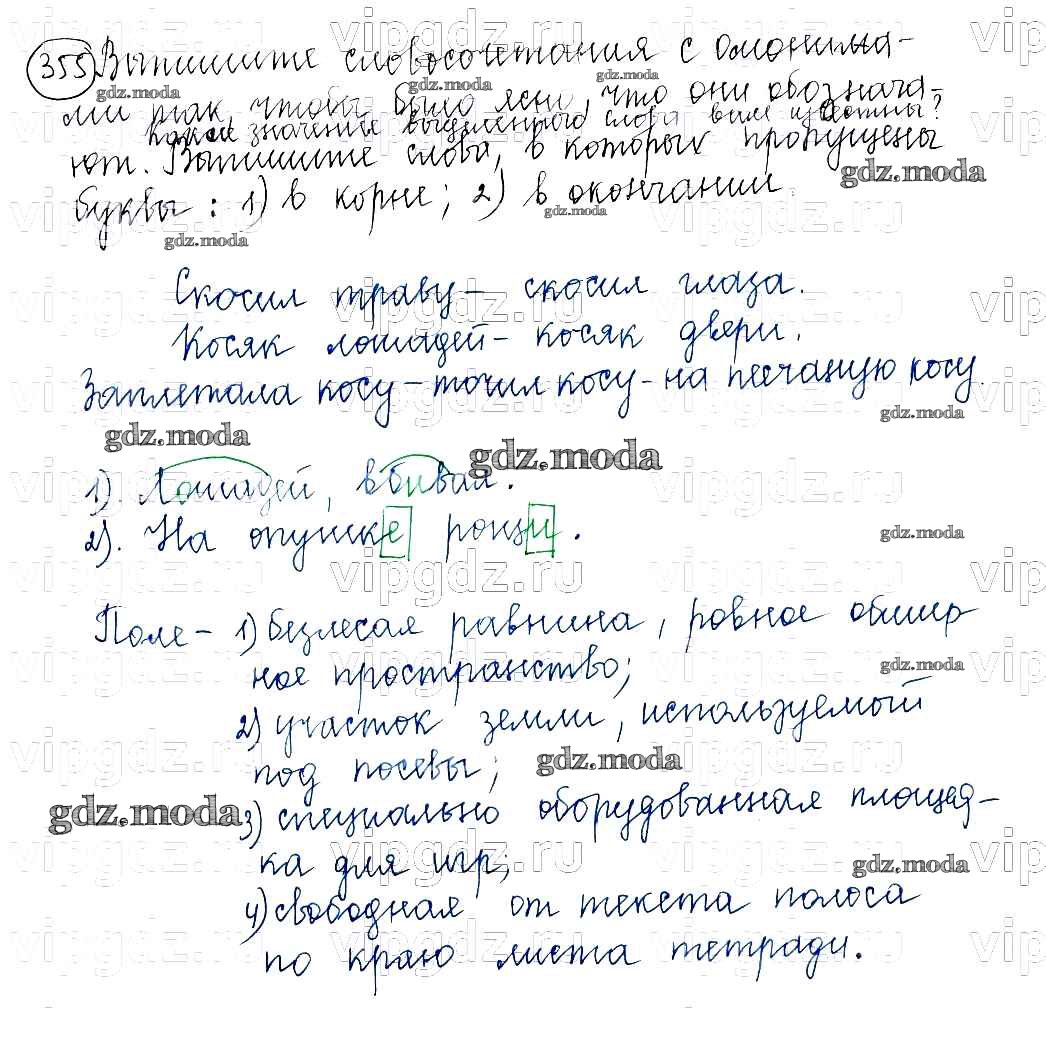 355 Выпишите словосочетания с омонима-
ми так, чтобы было ясно, что они обознача-
Какие значения выделенного слова вам известны?
ют. Выпишите слова, в которых пропущены
буквы: 1) в корне; 2) в окончании.
Скосил траву – скосил глаза.
Косяк лошадей – косяк двери.
Заплетала косу – точил косу – на песчаную косу.
1). Лошадей, вбивая.
2). На опушке рощи.
Поле – 1) безлесая равнина, ровное обшир
ное пространство;
2) участок земли, используемый
под посевы;
3) специально оборудованная площад-
ка для игр;
4) свободная от текста полоса
по краю листа тетради.